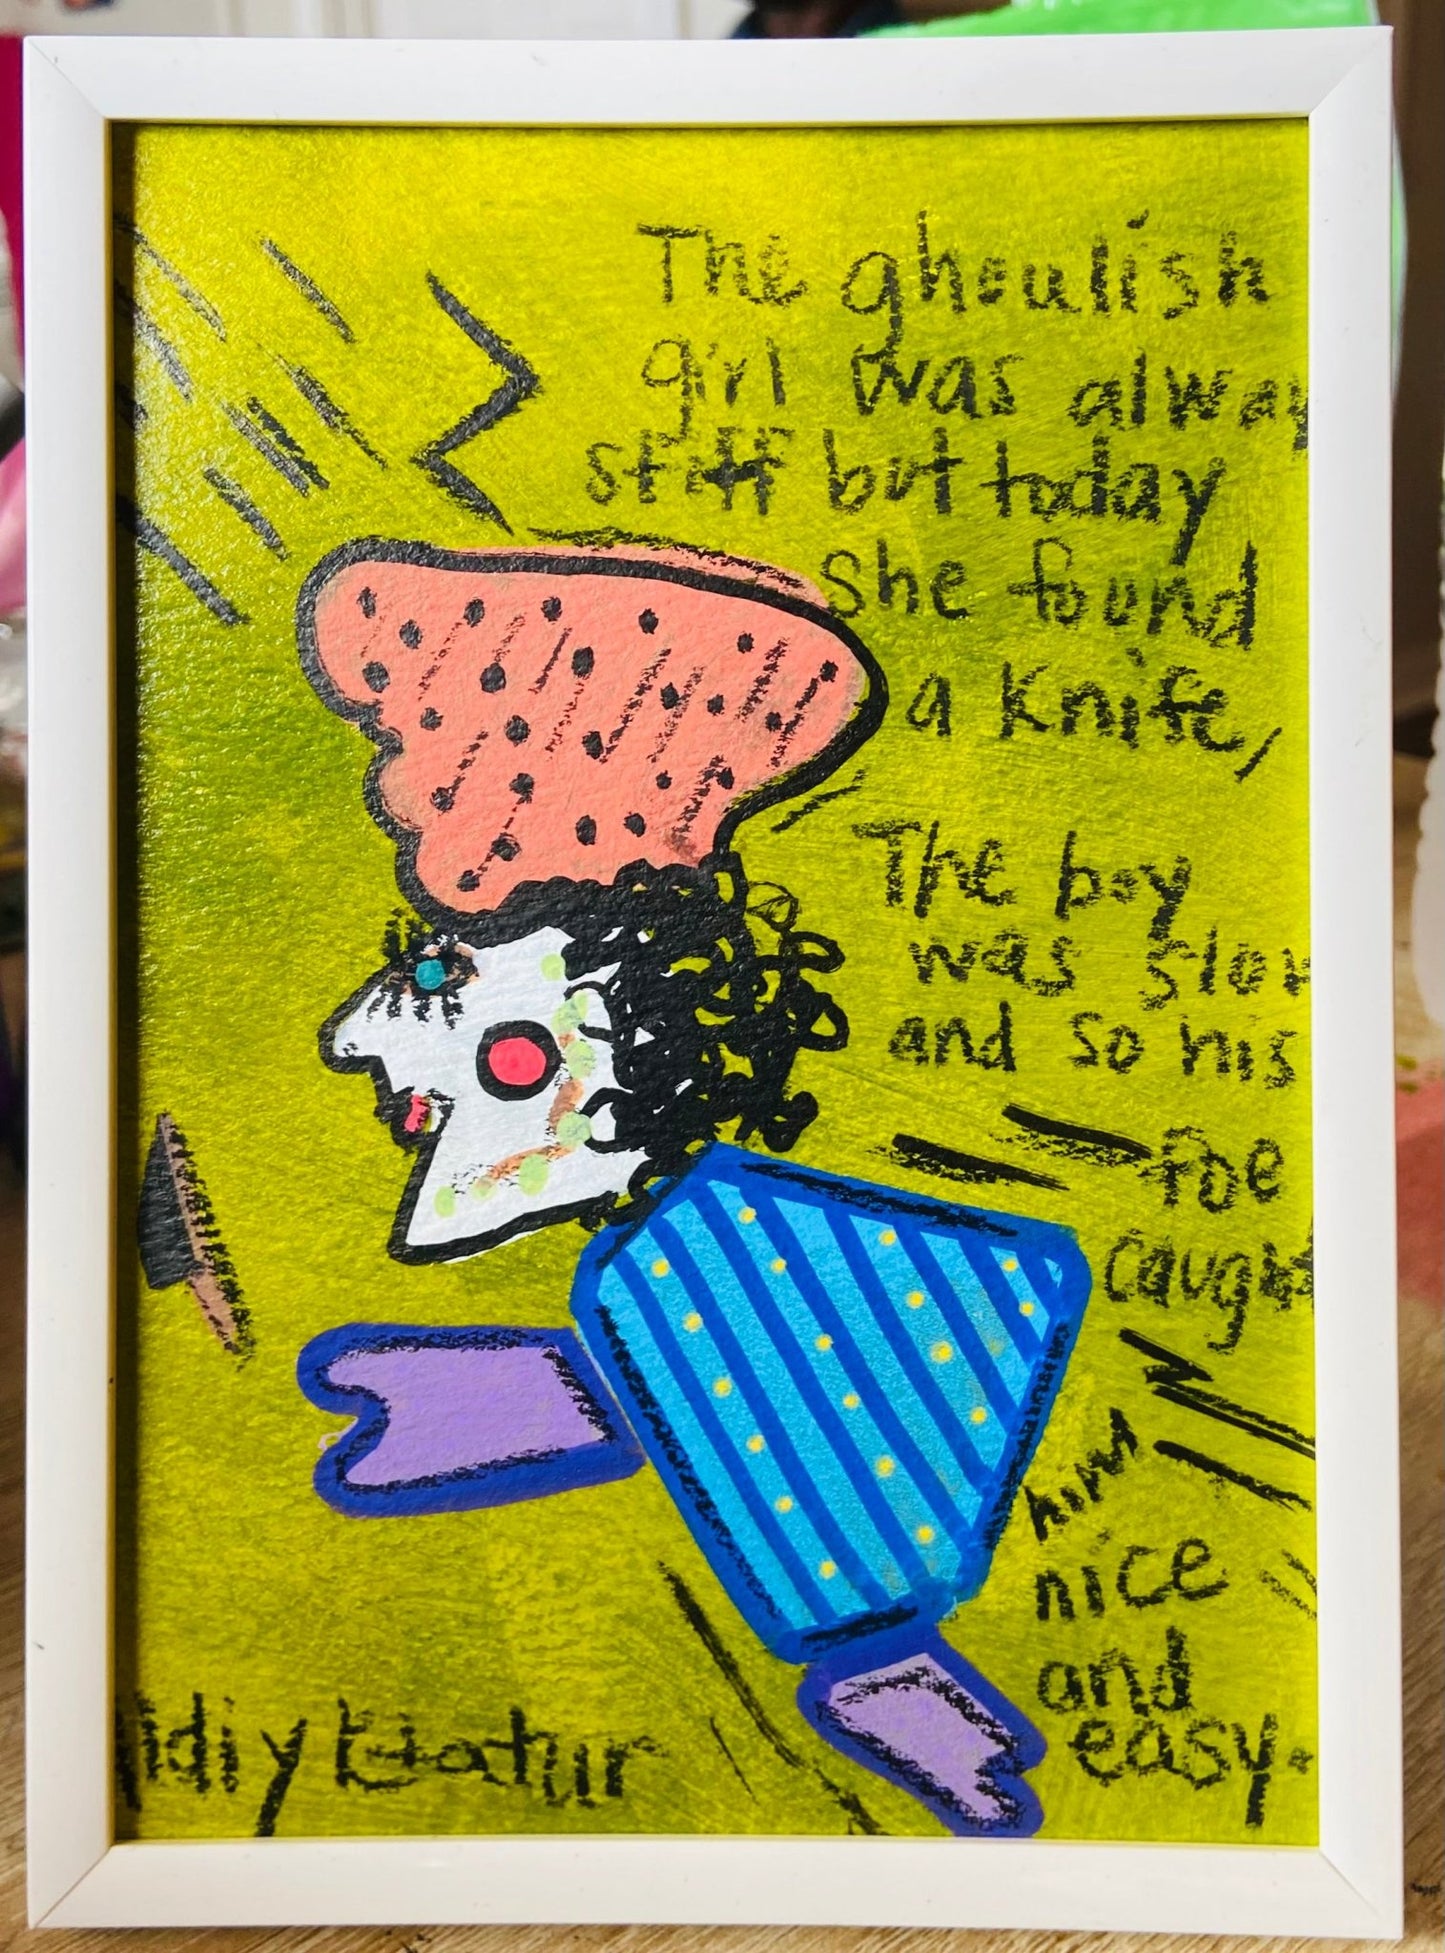 The ghoulish
girl was alway
stiff but today
she found
a knife,
The boy
was slow
and so his
foe
caught
him
nice
and
easy.